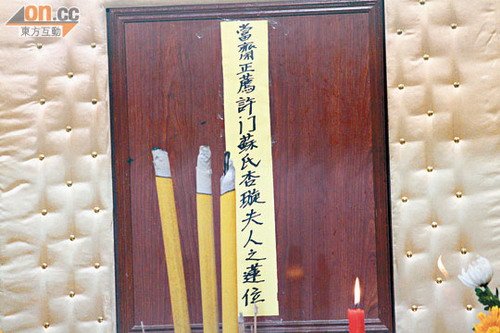 on.cc
東方互動
當齋正薦許门蘇氏杏璇夫人之蓮位